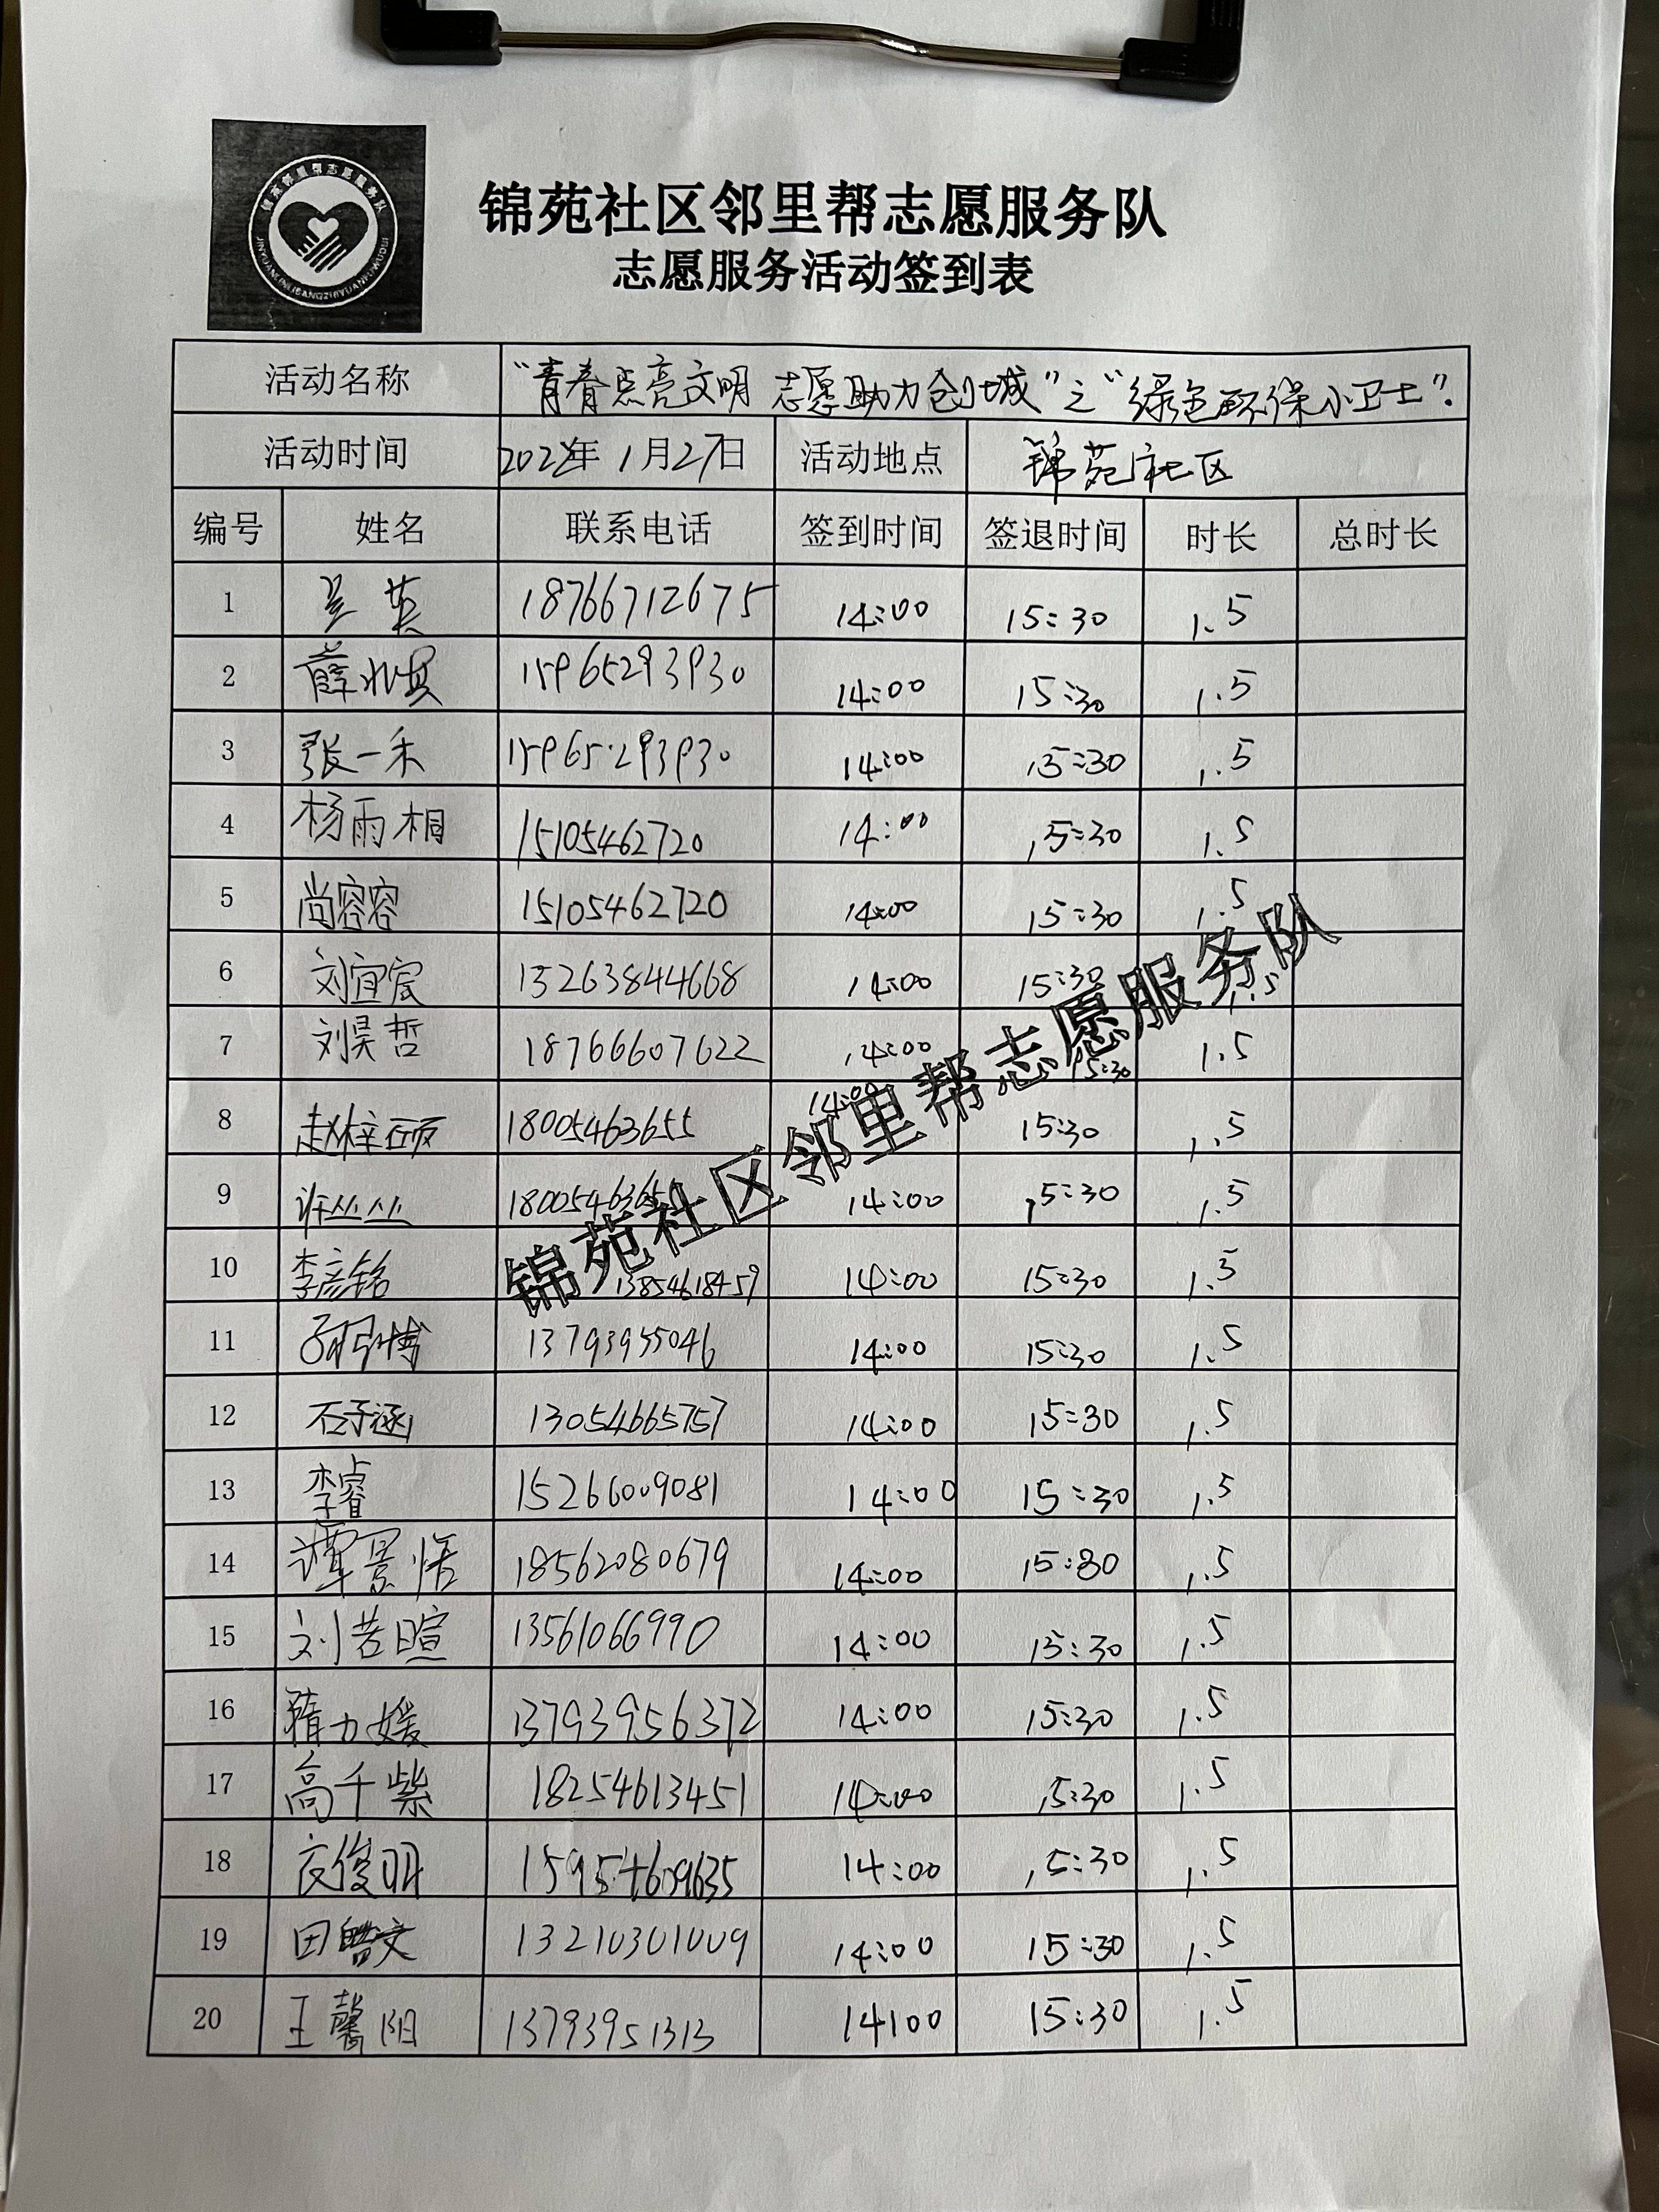 锦苑邻里帮志愿服务队
锦苑社区邻里帮志愿服务队
志愿服务活动签到表
活动名称 “青春点亮文明 志愿助力创城”之“绿色环保小卫士”.
活动时间 2022年1月27日 活动地点 锦苑社区
编号 姓名 联系电话 签到时间 签退时间 时长 总时长
1 吴英 18766712675 14:00 15:30 1.5
2 薛 15965293930 14:00 15:30 1.5
3 张一禾 15965293930 14:00 15:30 1.5
4 杨雨桐 15105462720 14:00 15:30 1.5
5 尚容容 15105462720 14:00 15:30 1.5
6 刘宜宸 15263844668 14:00 15:30 1.5
7 刘昊哲 18766607622 14:00 15:30 1.5
8 赵梓硕 18005463655 14:00 15:30 1.5
9 许丛丛 14:00 15:30 1.5
10 李彦铭 13854618459 14:00 15:30 1.5
11 13793955046 14:00 15:30 1.5
12 石子涵 13054665757 14:00 15:30 1.5
13 李睿 15266009081 14:00 15:30 1.5
14 谭景恬 18562080679 14:00 15:30 1.5
15 刘若暄 13561066990 14:00 15:30 1.5
16 13793956372 14:00 15:30 1.5
17 高千紫 18254613451 14:00 15:30 1.5
18 15954609635 14:00 15:30 1.5
19 田 13210301009 14:00 15:30 1.5
20 王馨阳 13793951313 14:00 15:30 1.5
锦苑社区邻里帮志愿服务队